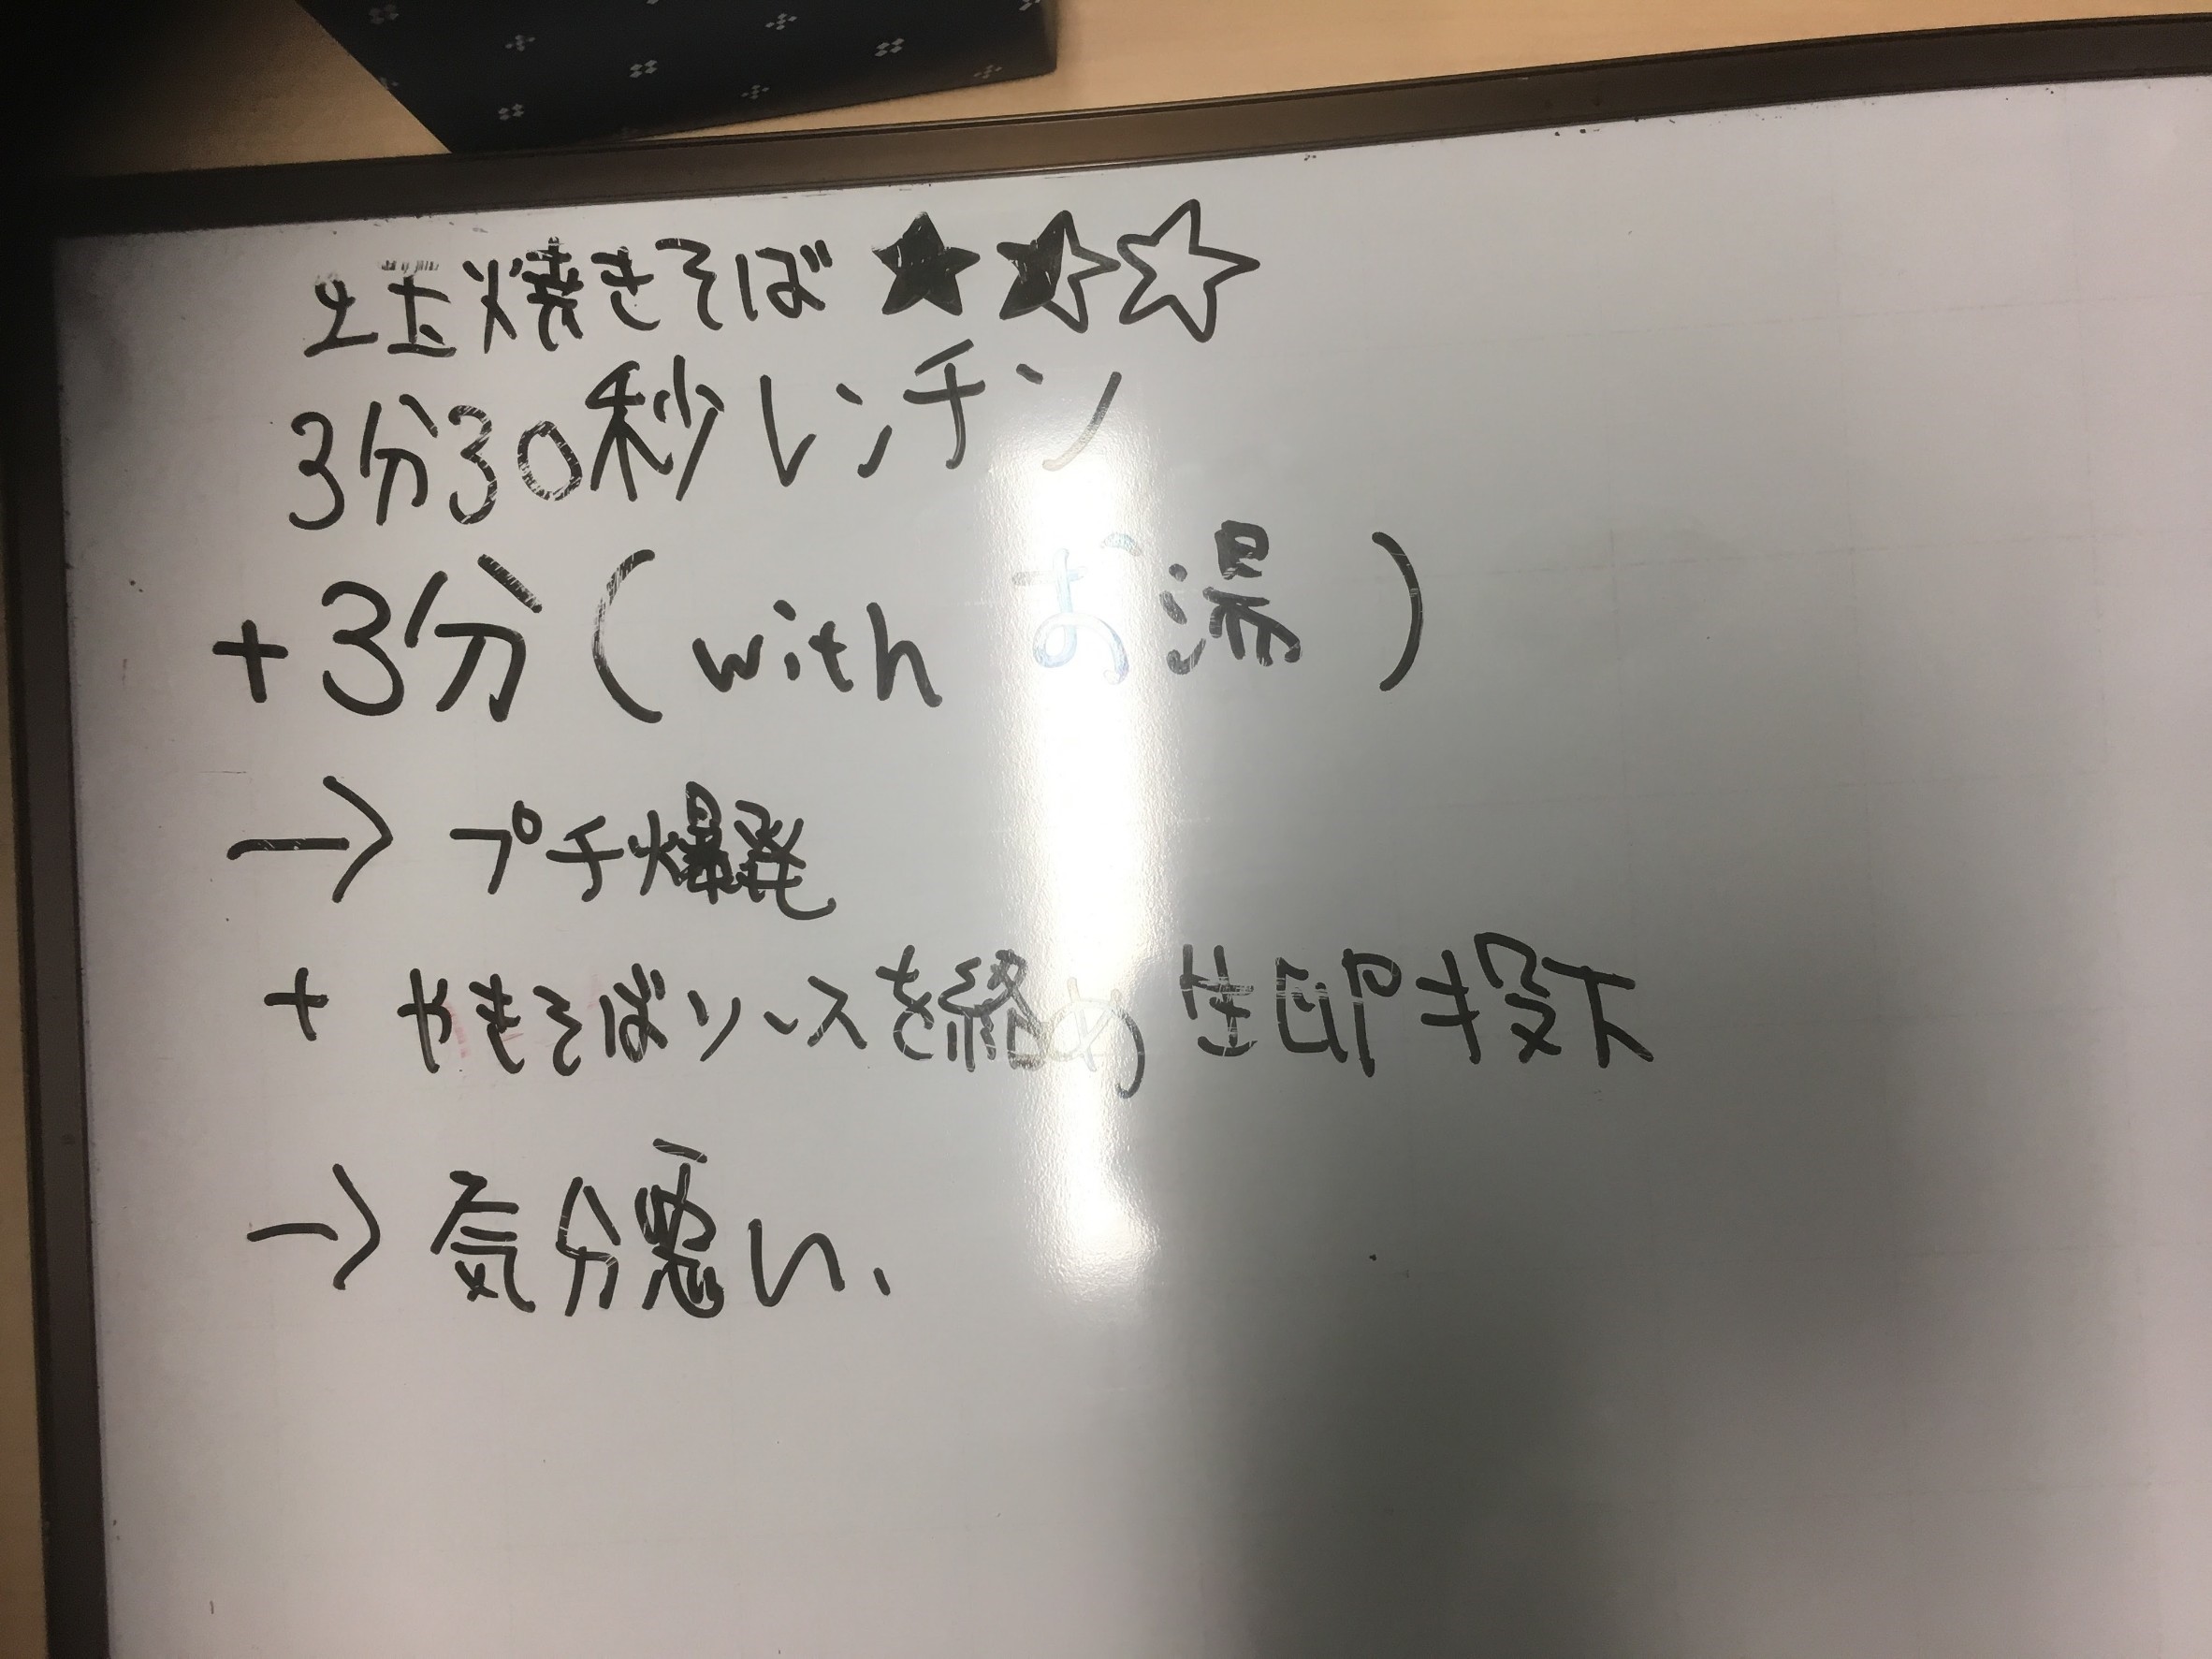 2玉焼きそば ★★☆
3分30秒レンチン
+3分(with お湯)
→ プチ爆発
+ やきそばソースを絡め生卵投下
→ 気分悪い、